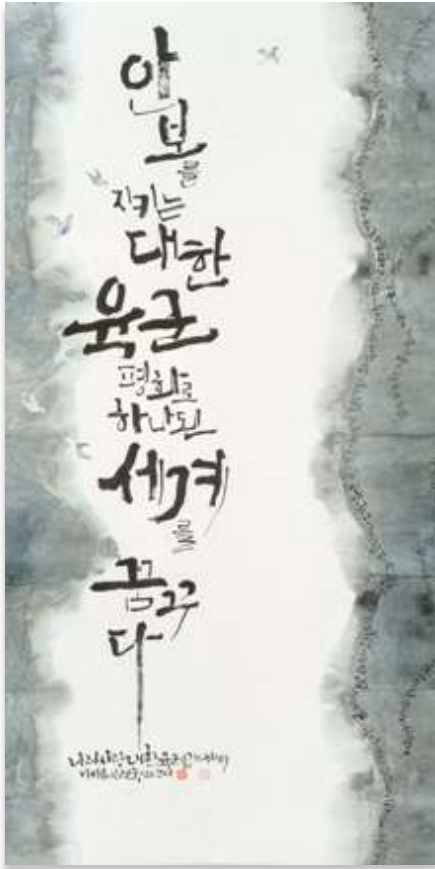 안
보를
지키는
대한
육군
평화로
하나된
세계
를
꿈꾸
다